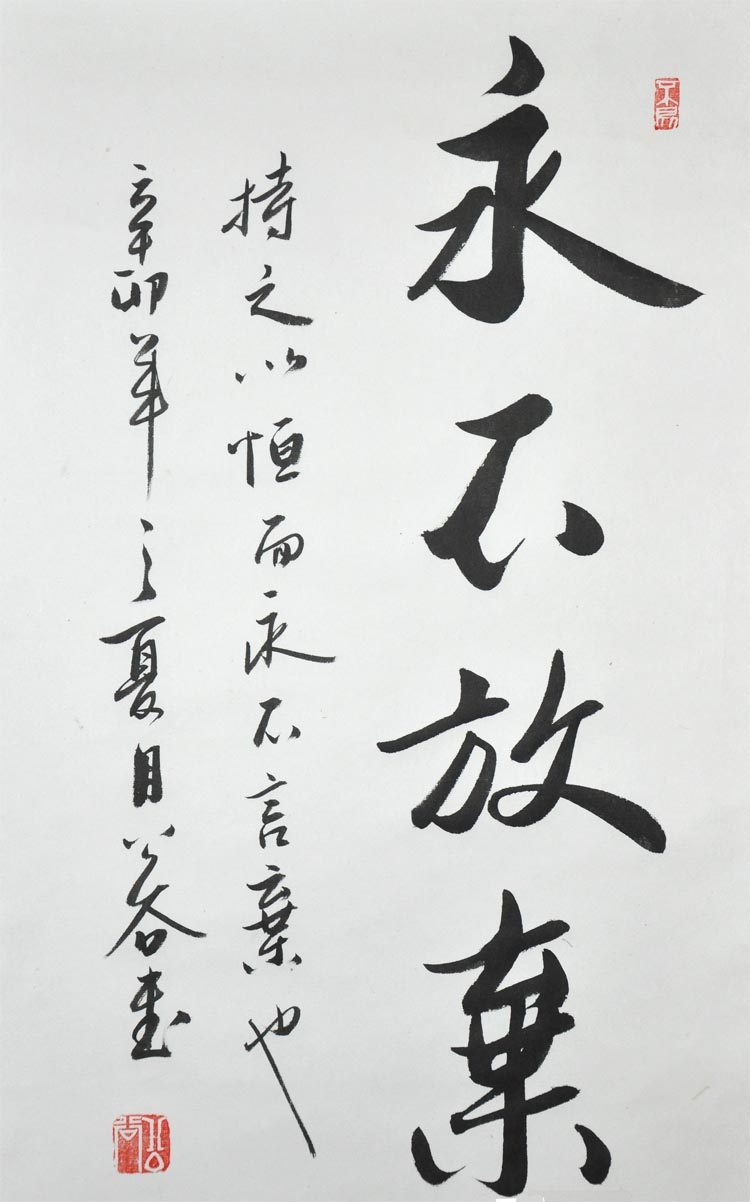 永不放棄
持之以恒而永不言棄也
辛卯年之夏月書